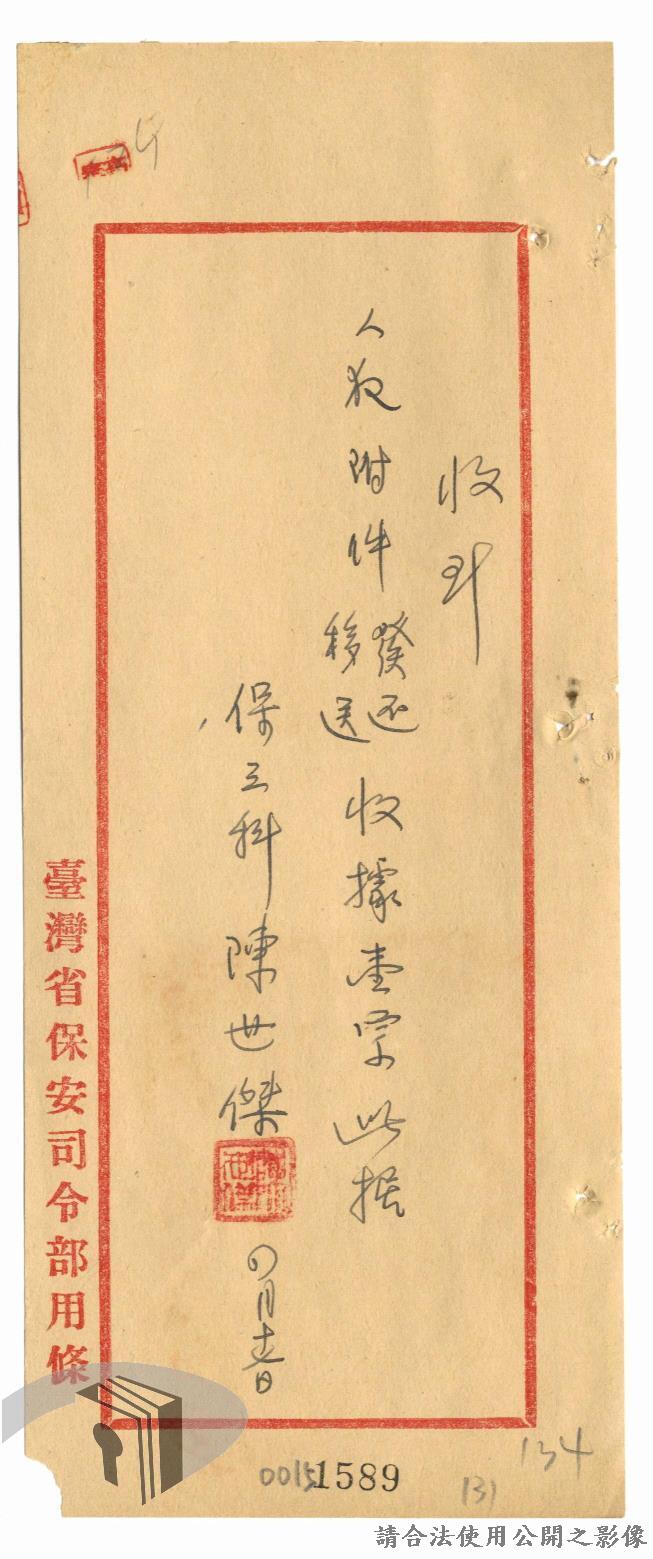 收到
人犯附件
發还
移送
收據壹宗此据
保三科陳世傑
四月
臺灣省保安司令部用條
0015
1589
131
134
請合法使用公開之影像